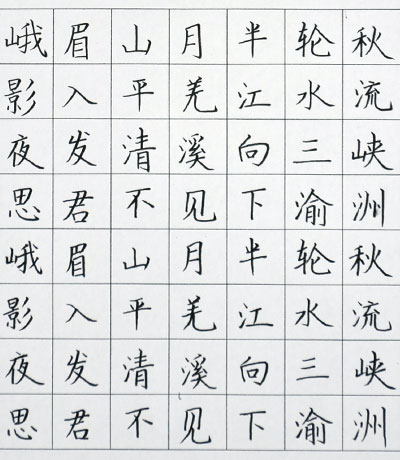 峨眉山月半轮秋
影入平羌江水流
夜发清溪向三峡
思君不见下渝洲
峨眉山月半轮秋
影入平羌江水流
夜发清溪向三峡
思君不见下渝洲